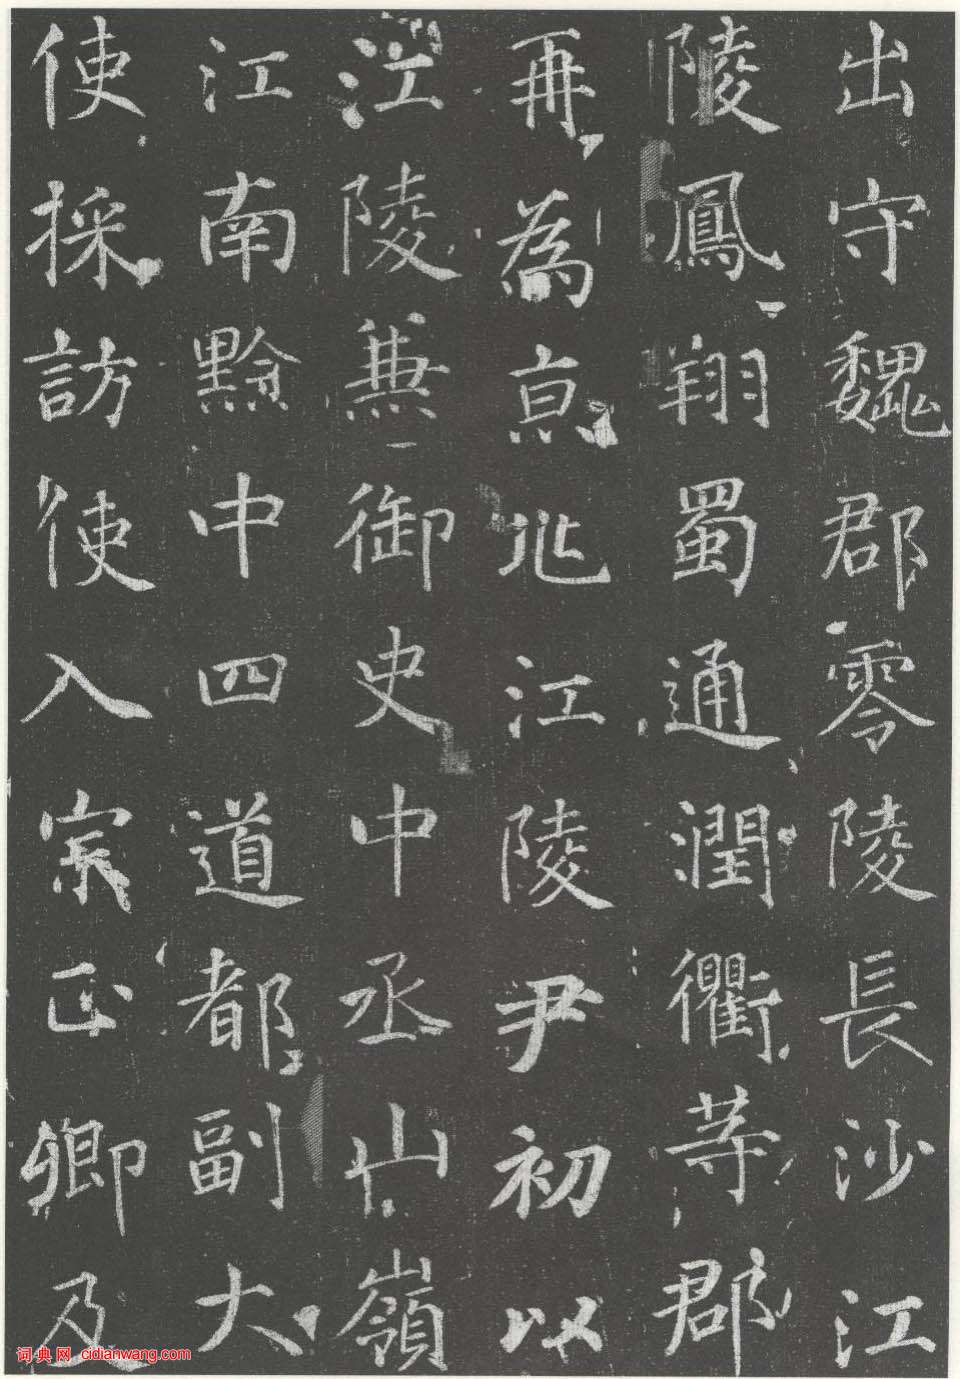 出守魏郡零陵長沙江
陵鳳翔蜀通潤衢等郡
再為京兆江陵尹初以
江陵兼御史中丞山嶺
江南黔中四道都副大
使採訪使入宗正卿及
词典网 cidianwang.com